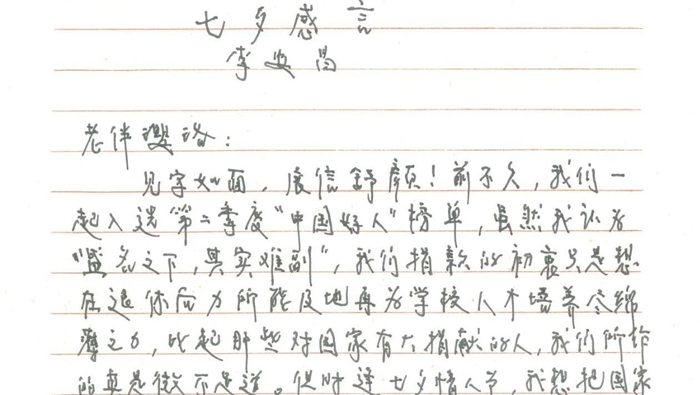 七夕感言
李安昌
老伴璎珞：
见字如面，展信舒颜！前不久，我们一
起入选第二季度“中国好人”榜单，虽然我认为
“盛名之下，其实难副”，我们捐款的初衷只是想
在退休后力所能及地再为学校人才培养尽绵
薄之力，比起那些对国家有大捐献的人，我们所给
的真是微不足道。但时逢七夕情人节，我想把国家